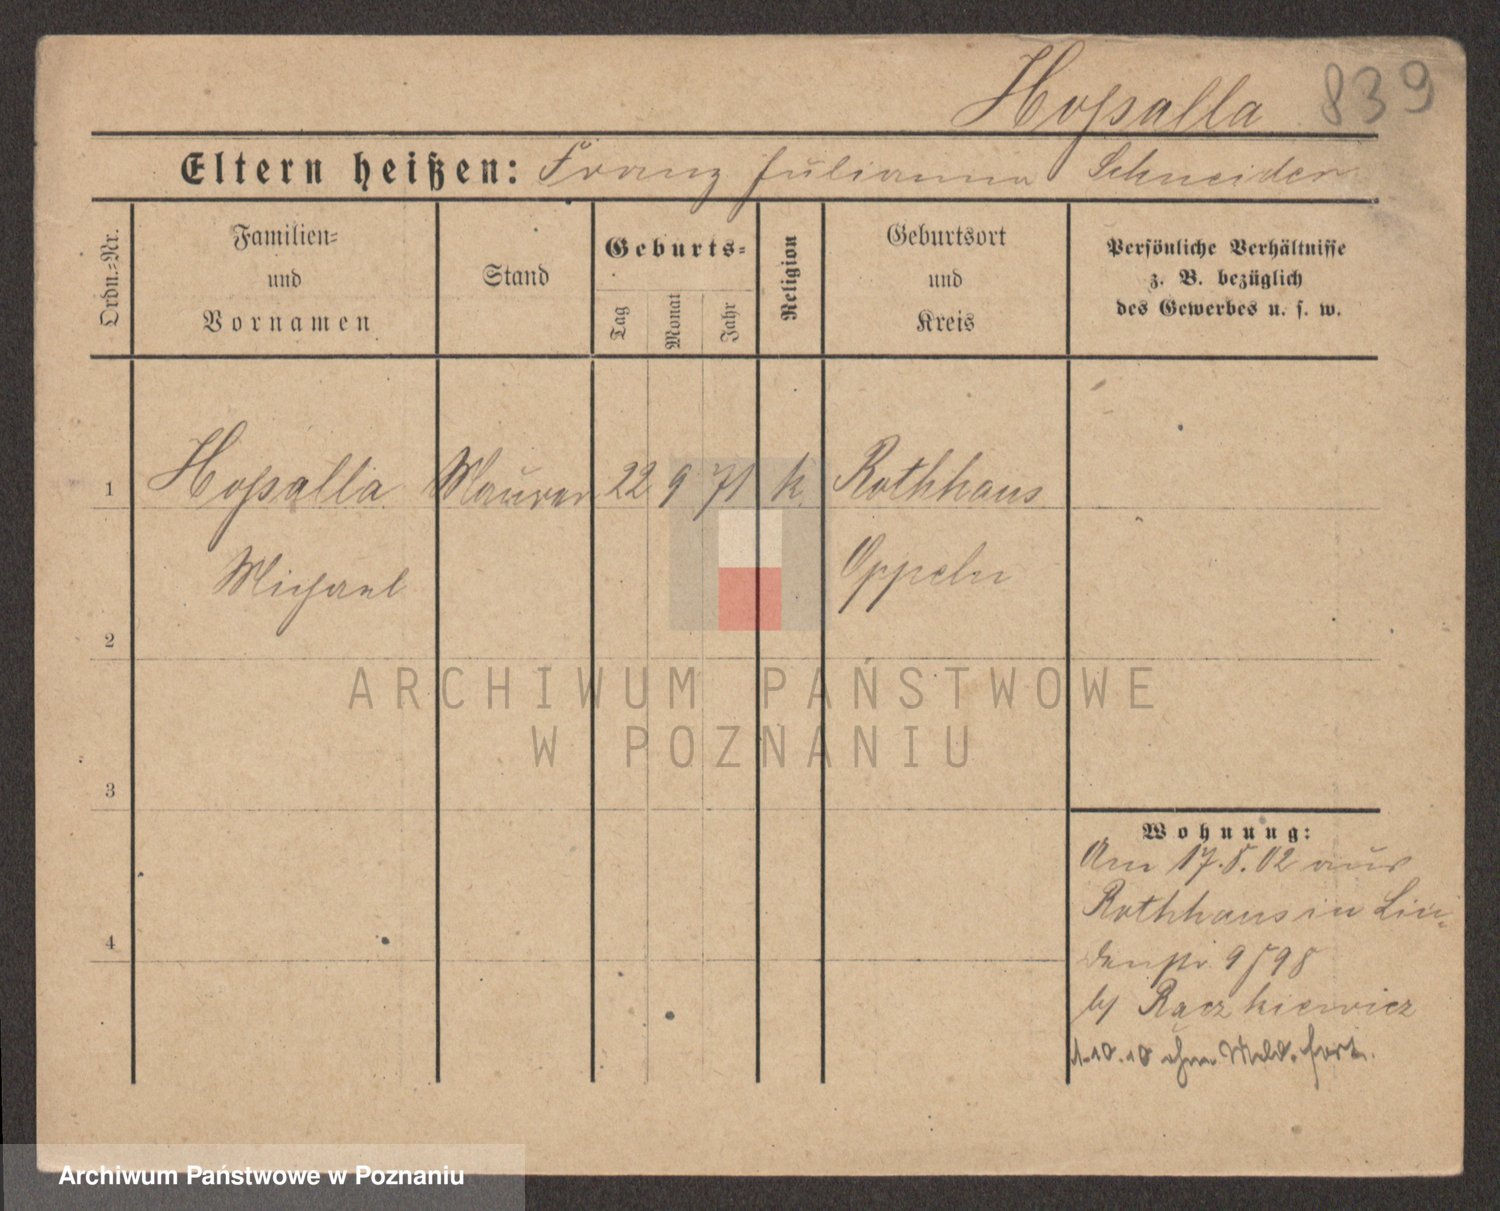 Hossalla 839
Eltern heißen: Franz Julianna Schneider
Ordn.-Nr.
Familien-
und
Vornamen
Stand
Geburts-
Tag
Monat
Jahr
Religion
Geburtsort
und
Kreis
Persönliche Verhältnisse
z. B. bezüglich
des Gewerbes u. s. w.
1 Hossalla Maurer 22 9 71 k. Rothhaus
Michael Oppeln
2
3
4
Wohnung:
Am 17.5.02 aus
Rothhaus in Lin-
denstr 9/98
by Raczkiewicz
1.10.10 ohne Meld. fort.
ARCHIWUM PAŃSTWOWE
W POZNANIU
Archiwum Państwowe w Poznaniu